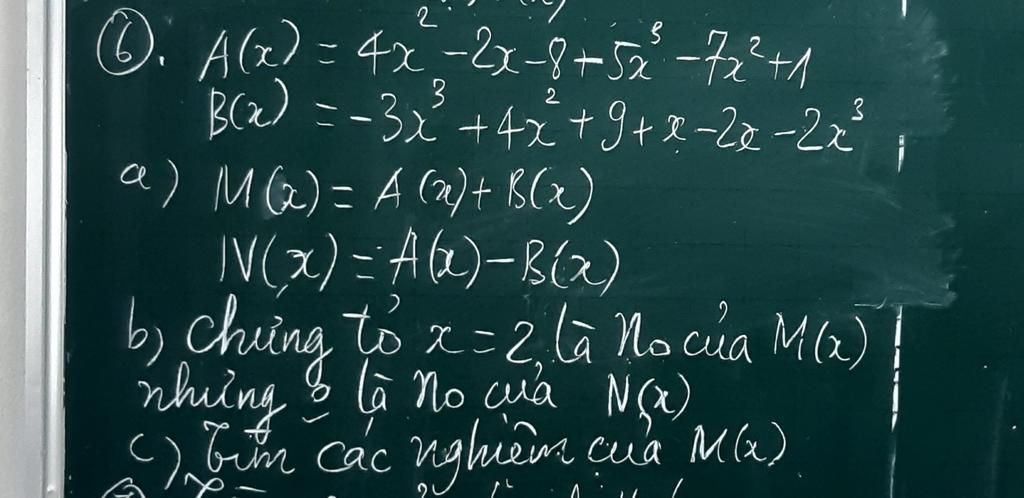 ⑥. A(x) = 4x² -2x-8+5x³ -7x²+1
B(x) = -3x³ +4x² +9+x-2x-2x³
a) M(x) = A(x)+B(x)
N(x) = A(x)-B(x)
b) chứng tỏ x=2 là no của M(x)
nhưng o là no của N(x)
c) Tìm các nghiệm của M(x)